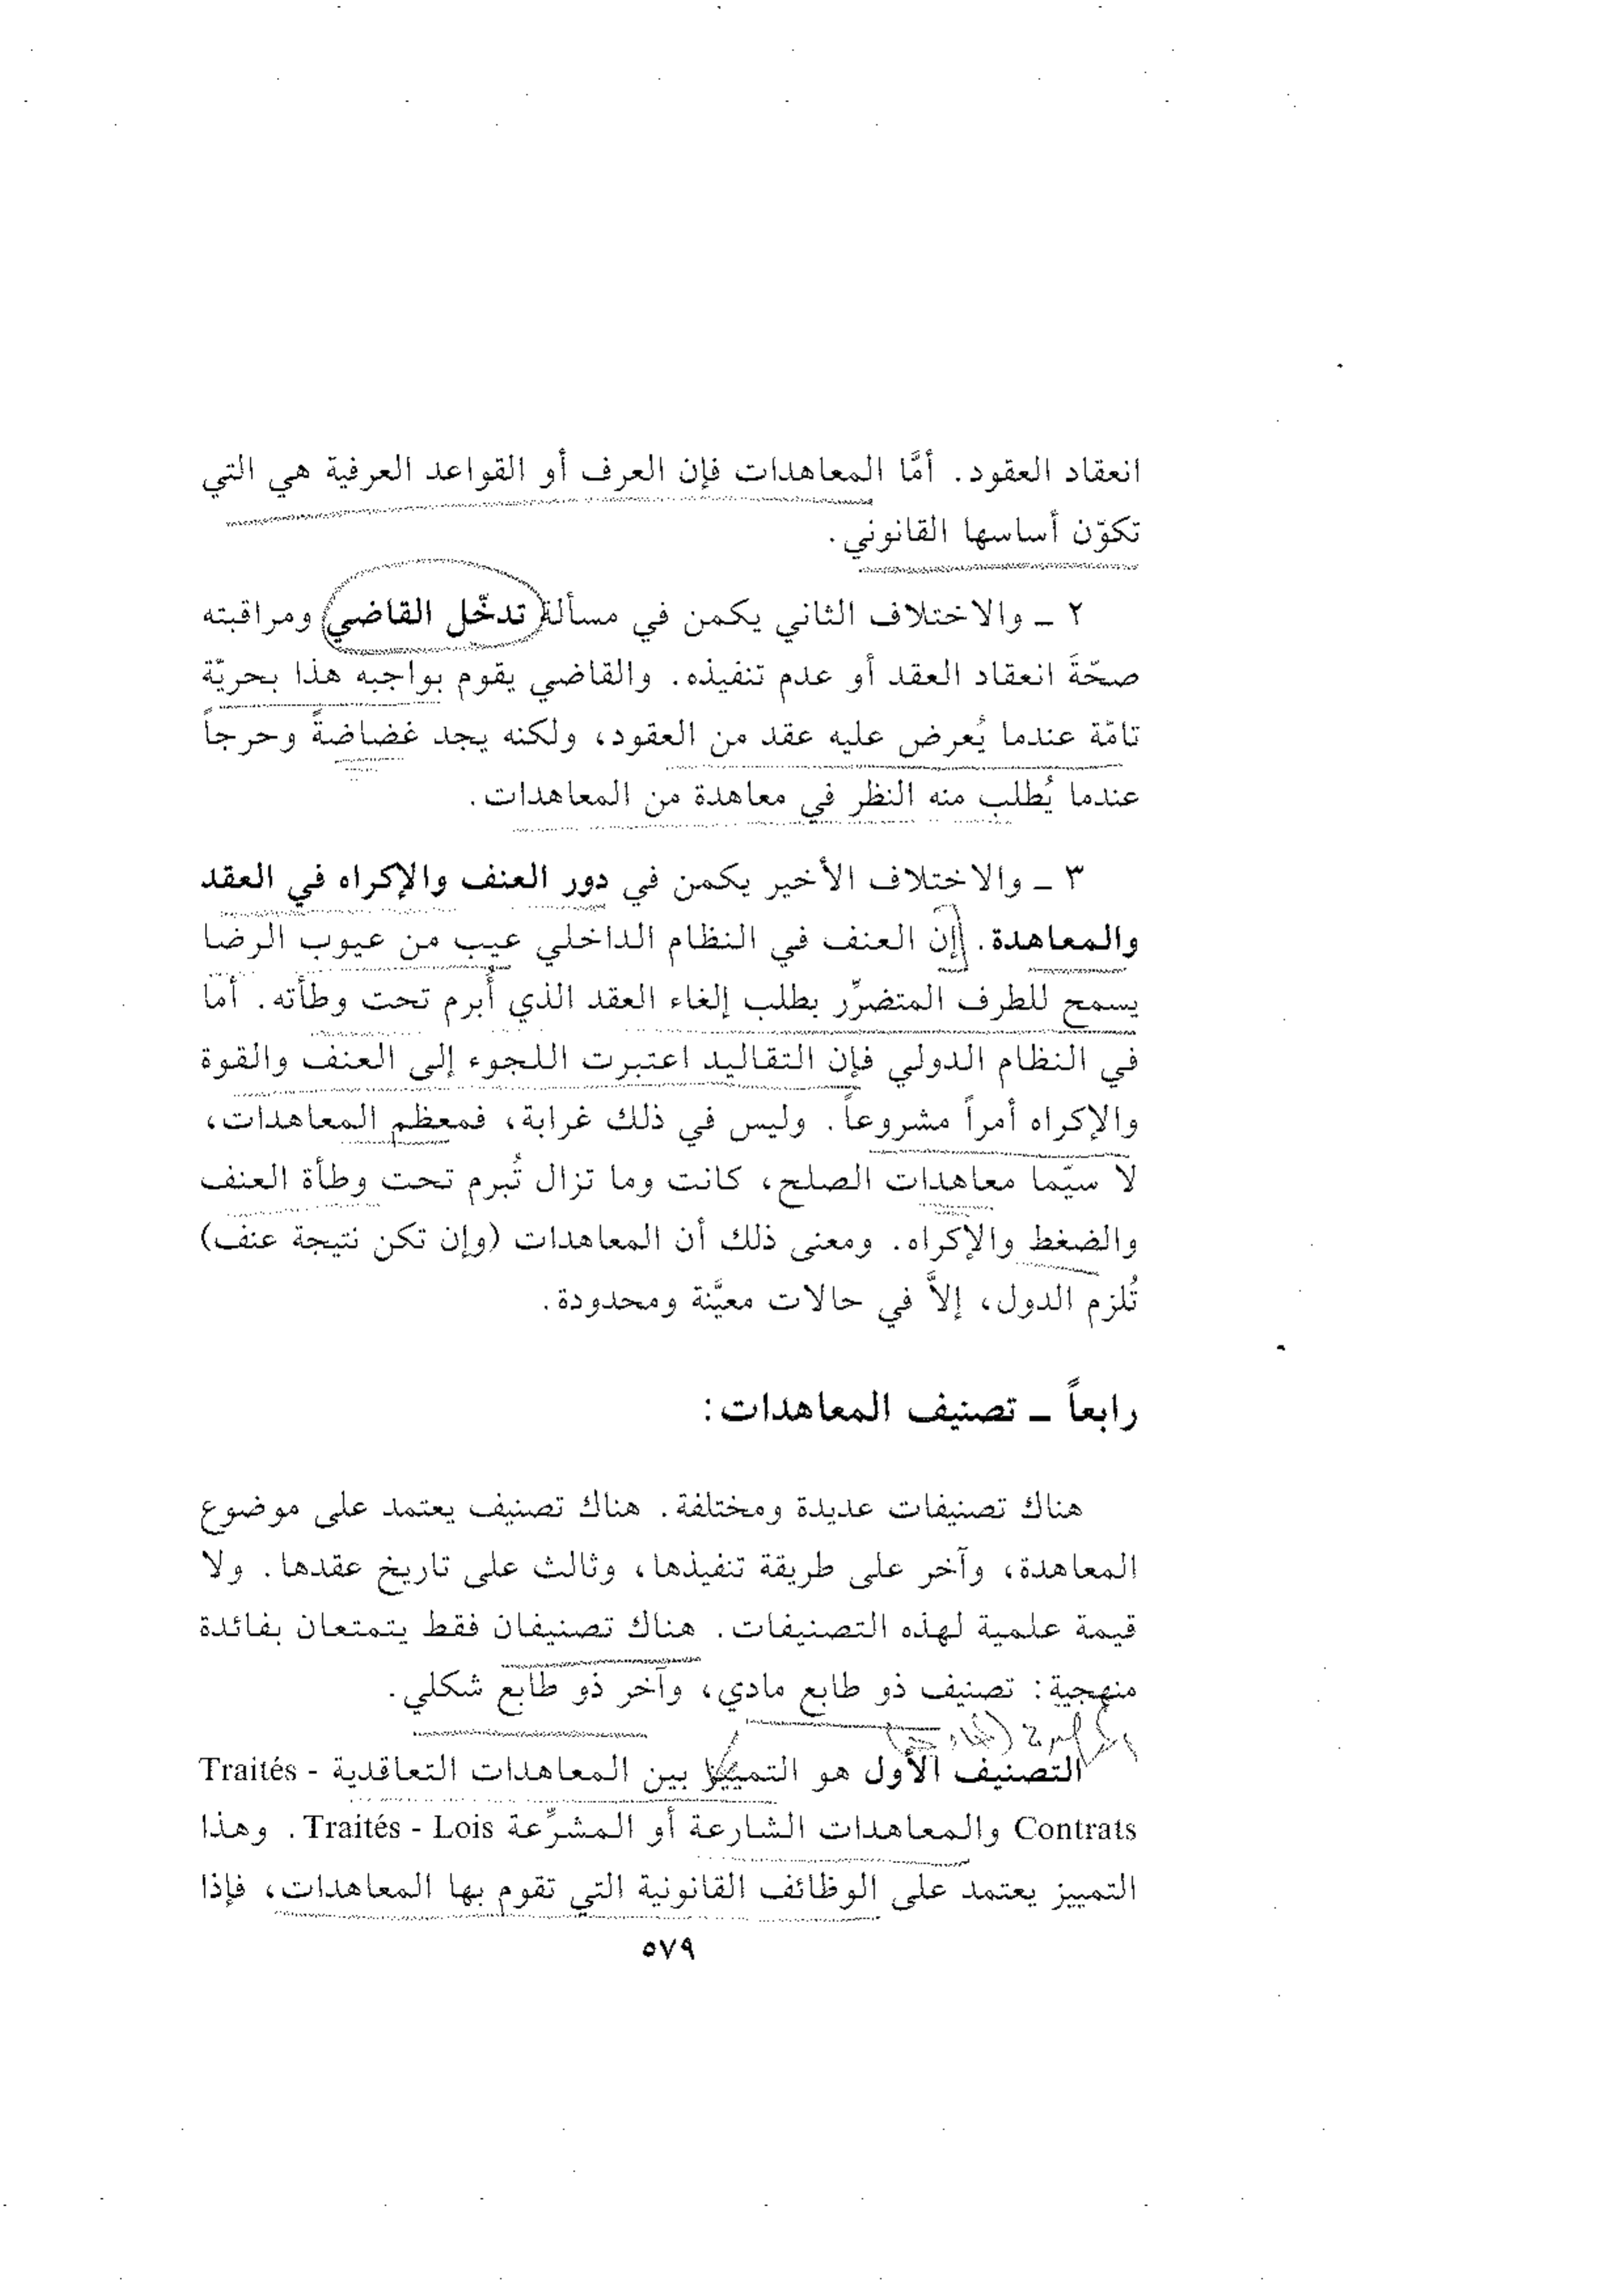 انعقاد العقود. أمَّا المعاهدات فإن العرف أو القواعد العرفية هي التي
تكوّن أساسها القانوني.
٢ ـ والاختلاف الثاني يكمن في مسألة تدخّل القاضي ومراقبته
صحّةَ انعقاد العقد أو عدم تنفيذه. والقاضي يقوم بواجبه هذا بحريّة
تامّة عندما يُعرض عليه عقد من العقود، ولكنه يجد غضاضةً وحرجاً
عندما يُطلب منه النظر في معاهدة من المعاهدات.
٣ ـ والاختلاف الأخير يكمن في دور العنف والإكراه في العقد
والمعاهدة. إن العنف في النظام الداخلي عيب من عيوب الرضا
يسمح للطرف المتضرِّر بطلب إلغاء العقد الذي أبرم تحت وطأته. أما
في النظام الدولي فإن التقاليد اعتبرت اللجوء إلى العنف والقوة
والإكراه أمراً مشروعاً. وليس في ذلك غرابة، فمعظم المعاهدات،
لا سيّما معاهدات الصلح، كانت وما تزال تُبرم تحت وطأة العنف
والضغط والإكراه. ومعنى ذلك أن المعاهدات (وإن تكن نتيجة عنف)
تُلزم الدول، إلاَّ في حالات معيَّنة ومحدودة.
رابعاً ـ تصنيف المعاهدات:
هناك تصنيفات عديدة ومختلفة. هناك تصنيف يعتمد على موضوع
المعاهدة، وآخر على طريقة تنفيذها، وثالث على تاريخ عقدها. ولا
قيمة علمية لهذه التصنيفات. هناك تصنيفان فقط يتمتعان بفائدة
منهجية: تصنيف ذو طابع مادي، وآخر ذو طابع شكلي.
التصنيف الأول هو التمييز بين المعاهدات التعاقدية Traités -
Contrats والمعاهدات الشارعة أو المشرِّعة Traités - Lois. وهذا
التمييز يعتمد على الوظائف القانونية التي تقوم بها المعاهدات، فإذا
٥٧٩